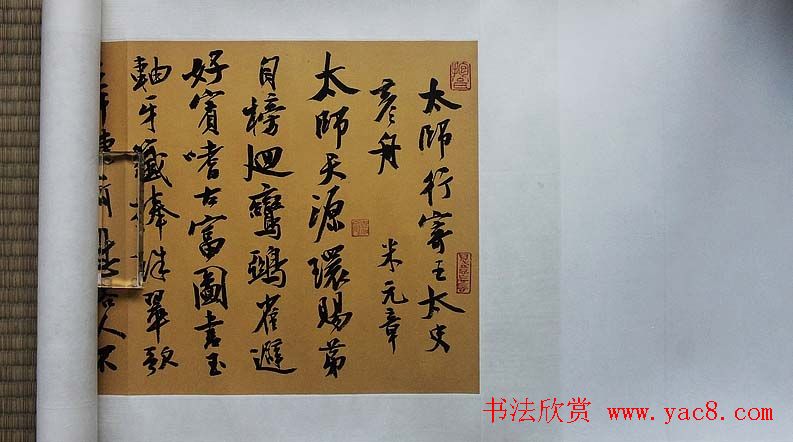 太師行寄王太史
彥舟 米元章
太師天源環賜第
目榜迴鸞鵶雀避
好賓嗜古富圖書玉
軸牙籤捧珠翠歌
人不
书法欣赏 www.yac8.com